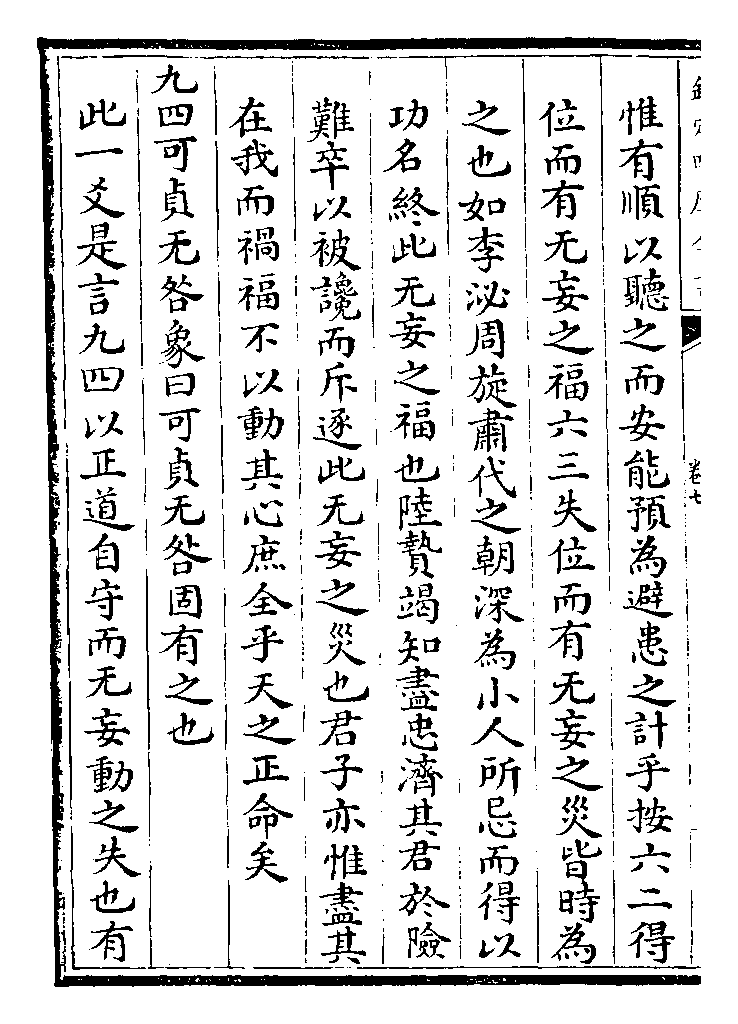 惟有順以聽之而安能預為避患之計乎按六二得
位而有无妄之福六三失位而有无妄之災皆時為
之也如李泌周旋肅代之朝深為小人所忌而得以
功名終此无妄之福也陸贄竭知盡忠濟其君於險
難卒以被讒而斥逐此无妄之災也君子亦惟盡其
在我而禍福不以動其心庶全乎天之正命矣
九四可貞无咎象曰可貞无咎固有之也
此一爻是言九四以正道自守而无妄動之失也有
卷七